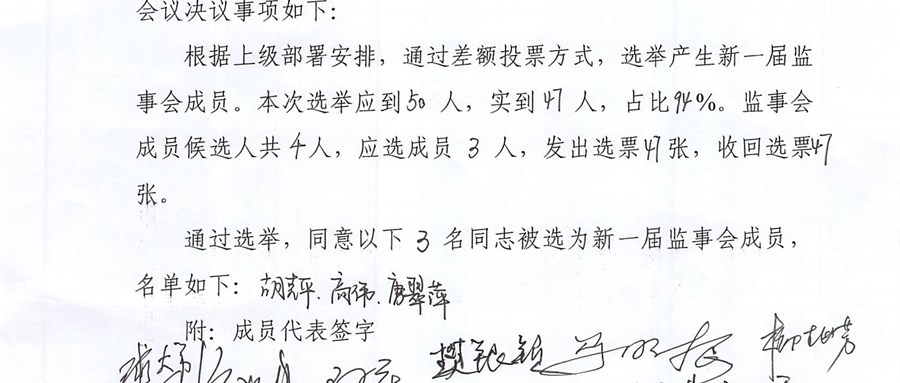 会议决议事项如下：
根据上级部署安排，通过差额投票方式，选举产生新一届监
事会成员。本次选举应到50人，实到47人，占比94%。监事会
成员候选人共4人，应选成员3人，发出选票47张，收回选票47
张。
通过选举，同意以下3名同志被选为新一届监事会成员，
名单如下：胡志平、高伟、唐翠萍
附：成员代表签字